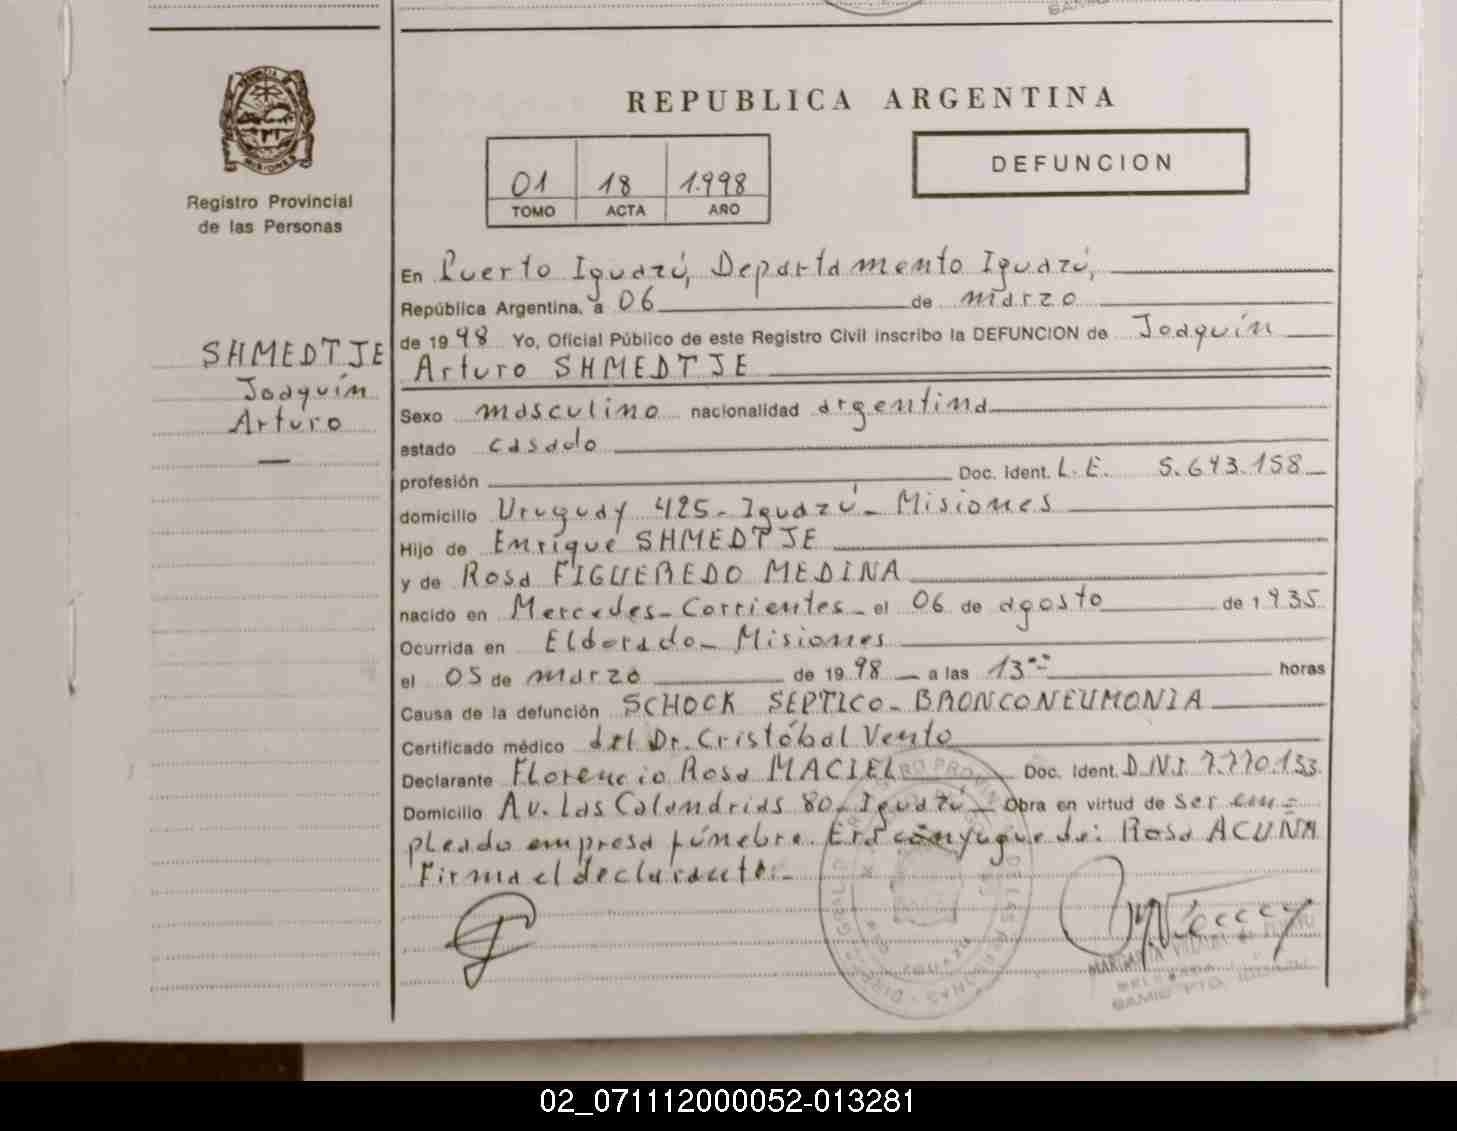 REPUBLICA ARGENTINA
DEFUNCION
01 18 1.998
TOMO ACTA AÑO
MISIONES
Registro Provincial
de las Personas
SHMEDTJE
Joaquín
Arturo
En Puerto Iguazú, Departamento Iguazú,
República Argentina, a 06 de marzo
de 1998 Yo, Oficial Público de este Registro Civil inscribo la DEFUNCION de Joaquín
Arturo SHMEDTJE
Sexo masculino nacionalidad argentina
estado casado
profesión Doc. Ident. L.E. 5.643.158
domicilio Uruguay 425- Iguazú- Misiones
Hijo de Enrique SHMEDTJE
y de Rosa FIGUEREDO MEDINA
nacido en Mercedes- Corrientes- el 06 de agosto de 1935
Ocurrida en Eldorado- Misiones
el 05 de marzo de 1998 a las 13 horas
Causa de la defunción SCHOCK SEPTICO- BRONCONEUMONIA
Certificado médico del Dr. Cristóbal Vento
Declarante Florencio Rosa MACIEL Doc. Ident. D.N.I. 7.770.133
Domicilio Av. Las Calandrias 80- Iguazú- Obra en virtud de ser em-
pleado empresa fúnebre. Era cónyugue de: Rosa ACUÑA
Firma el declarante:-
02_071112000052-013281